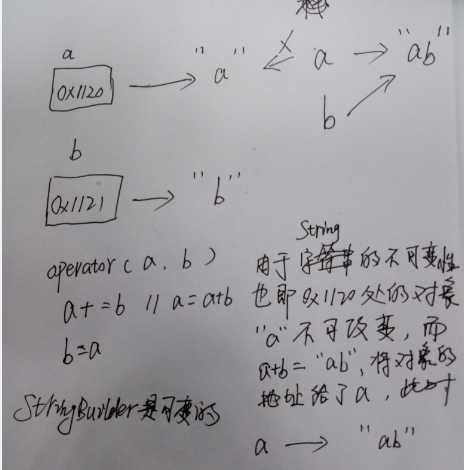 a
0x1120
"a"
a
"ab"
b
b
0x1121
"b"
operator(a, b)
a+=b // a=a+b
b=a
StringBuilder是可变的
String
由于字符串的不可变性
也即0x1120处的对象
"a"不可改变，而
a+b="ab"，将对象的
地址给了a，此时
a
"ab"